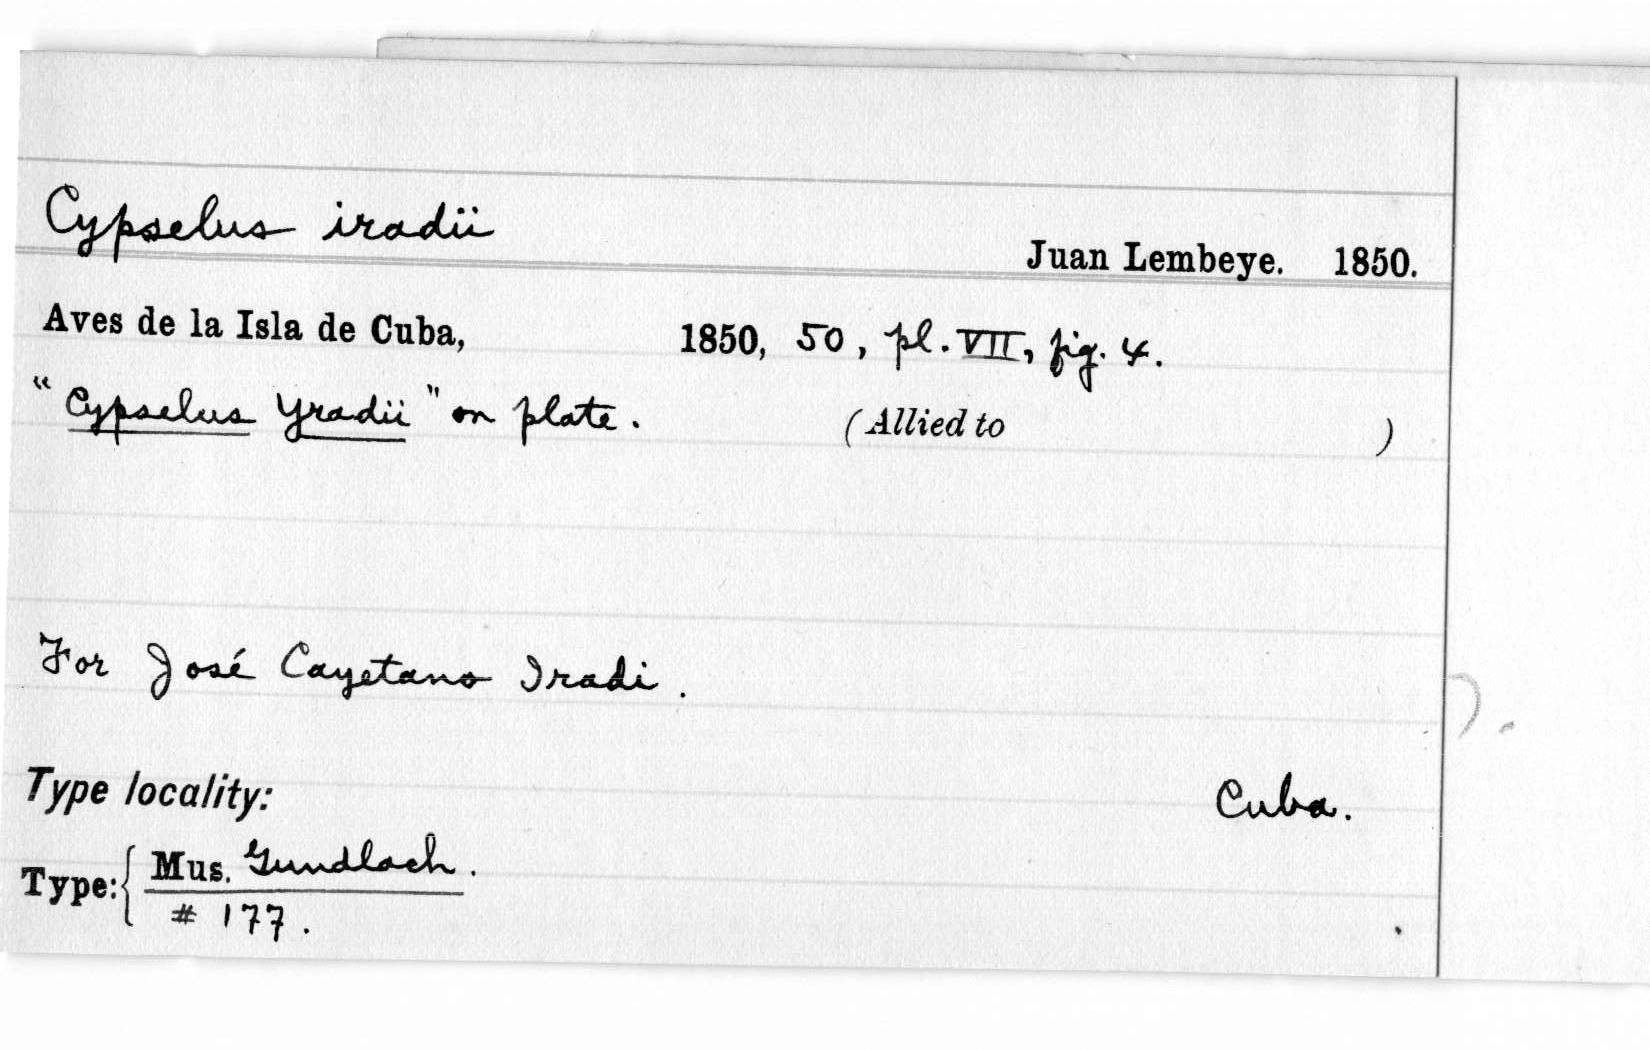 Cypselus iradii
Juan Lembeye. 1850.
Aves de la Isla de Cuba, 1850, 50, pl. VII, fig. 4.
"Cypselus Yradii" on plate. (Allied to )
For José Cayetano Iradi.
Type locality: Cuba.
Type: { Mus. Gundlach.
# 177.